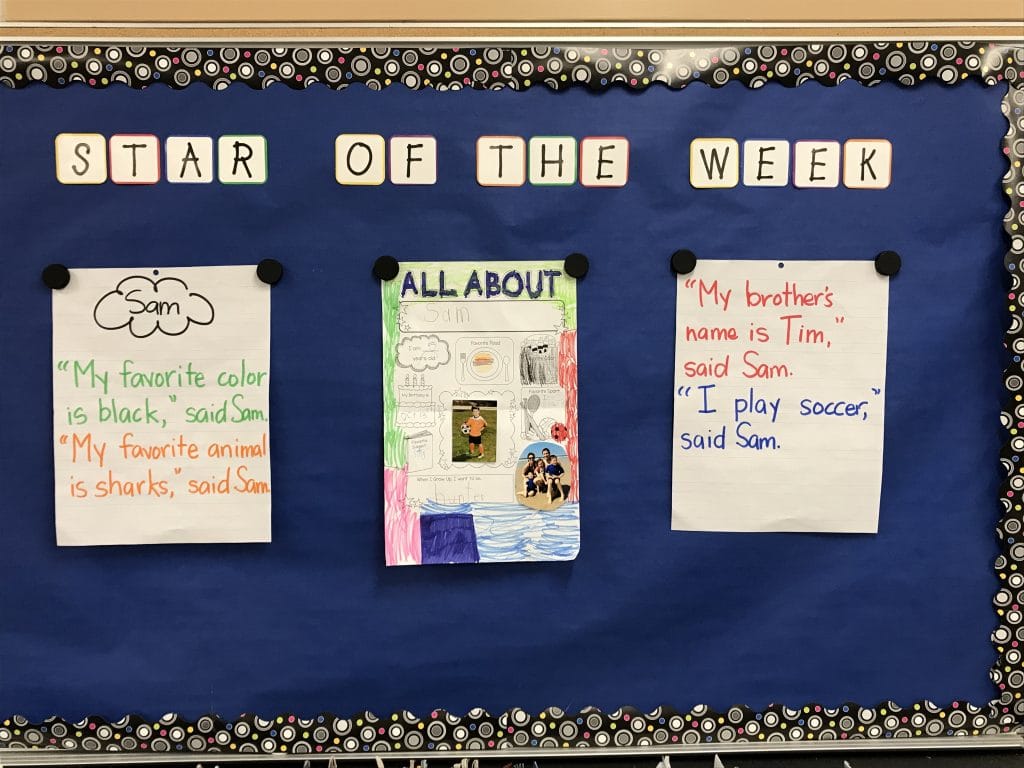 STAR OF THE WEEK
Sam
"My favorite color
is black," said Sam.
"My favorite animal
is sharks," said Sam.
ALL ABOUT
Sam
I am
years old.
Favorite Food
My Birthday is
Favorite Sport
When I Grow Up, I want to be:
hunter
"My brother's
name is Tim,"
said Sam.
"I play soccer,"
said Sam.